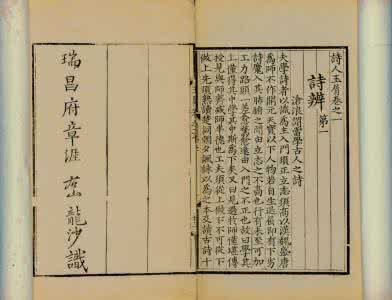 詩人玉屑卷之一
詩辨第一
滄浪謂當學古人之詩
夫學詩者以識爲主入門須正立志須高以漢魏盛唐
爲師不作開元天寶以下人物若自生退屈即有下劣
詩魔入其肺腑之間由立志之不高也行有未至可加
工力路頭一差愈騖愈遠由入門之不正也故曰學其
上僅得其中學其中斯爲下矣又曰見過於師僅堪傳
授見與師齊減師半德也工夫須從上做下不可從下
做上先須熟讀楚詞朝夕諷詠以爲之本及讀古詩十
瑞昌府章涯龍沙識